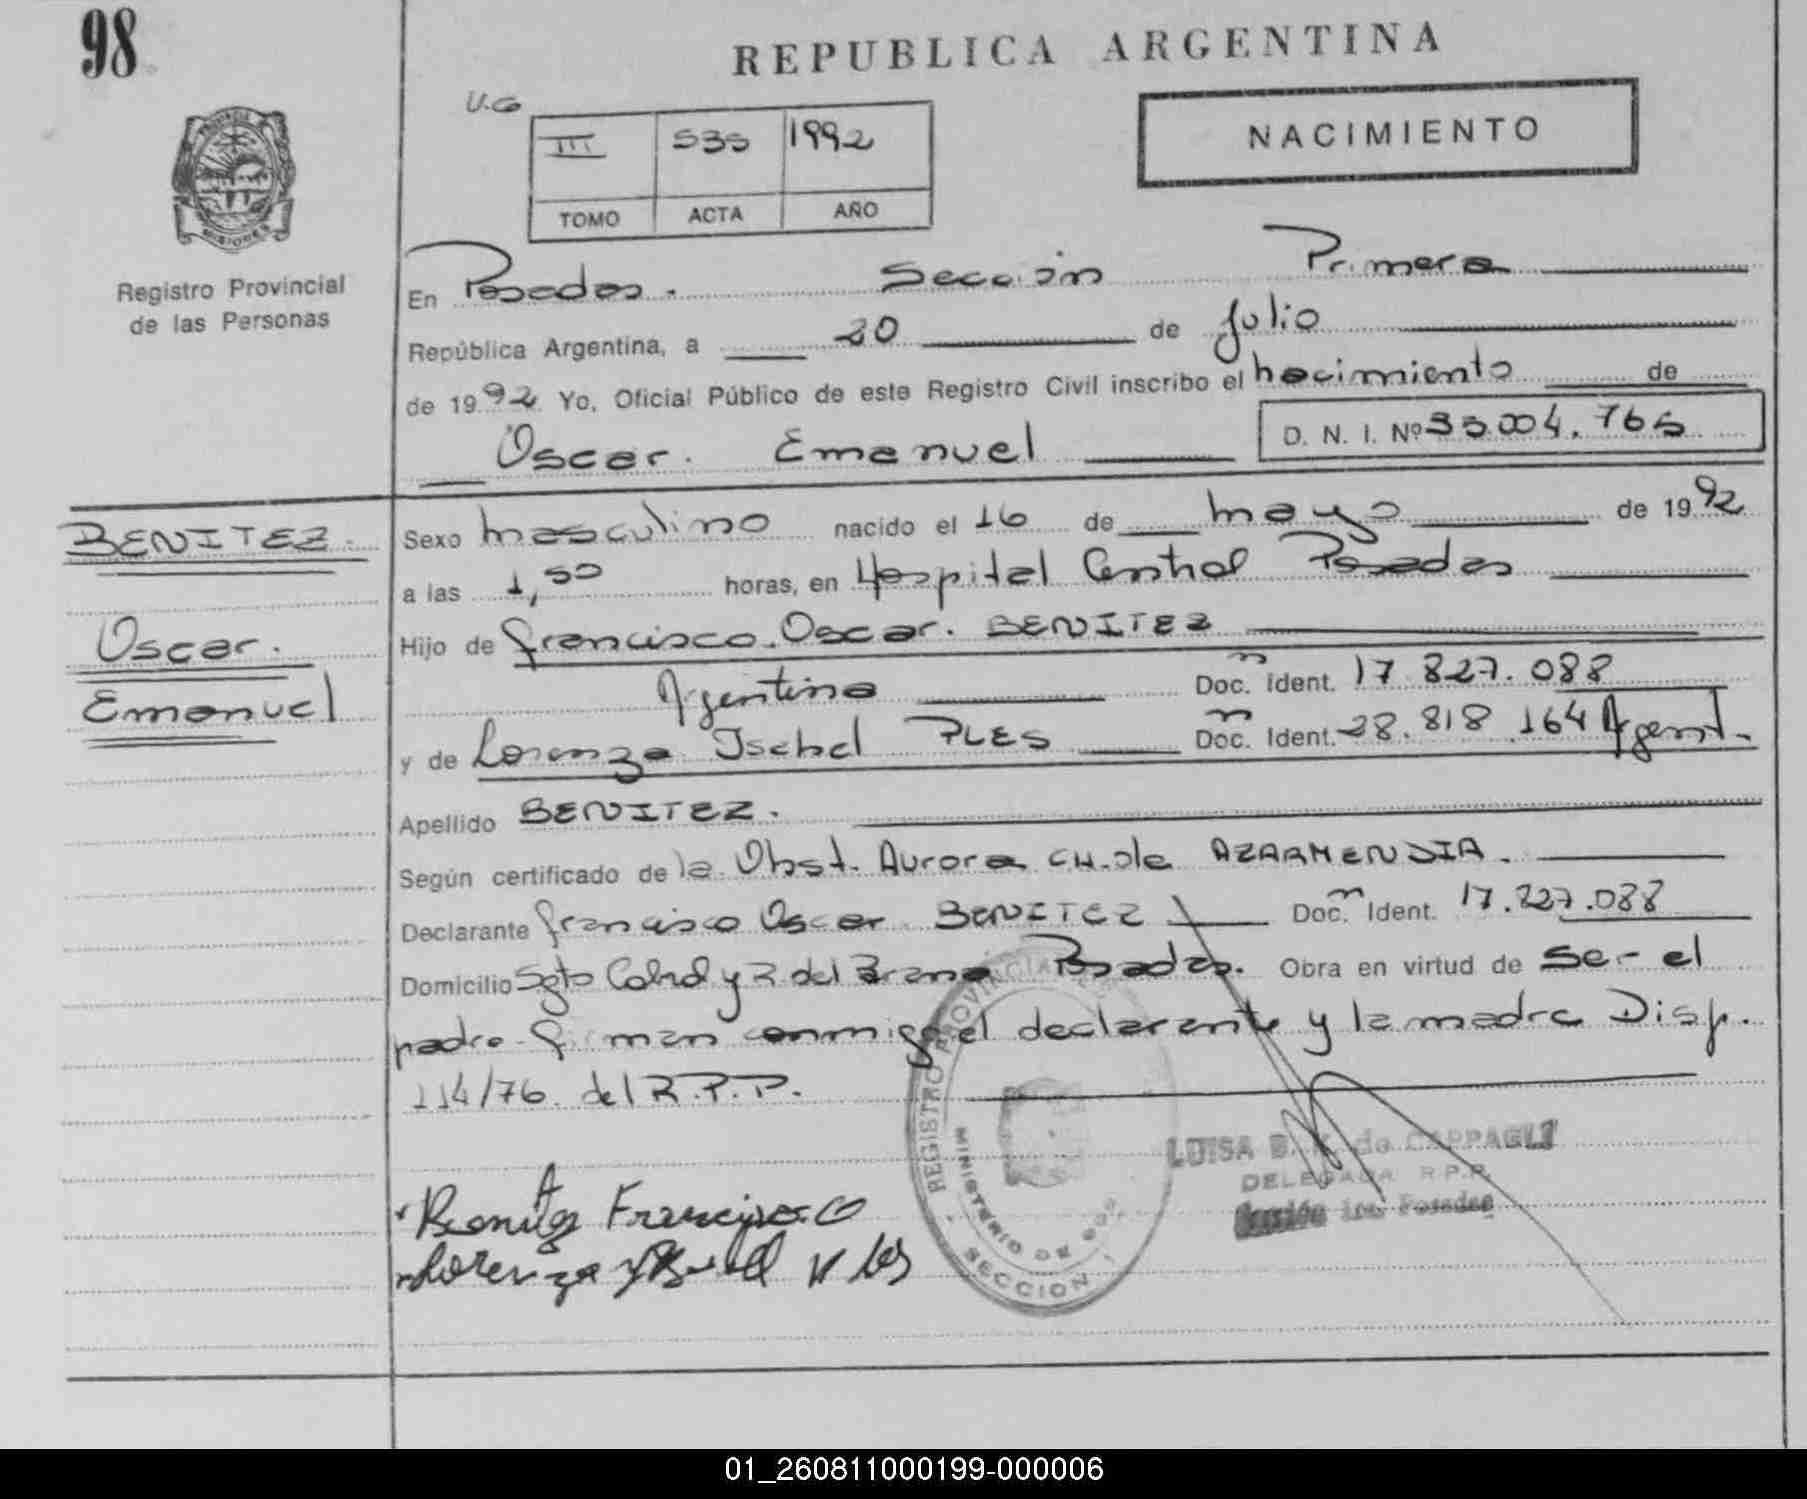 98
REPUBLICA ARGENTINA
U.G
III 535 1992
TOMO ACTA AÑO
NACIMIENTO
MISIONES
Registro Provincial
de las Personas
En Posadas. Sección Primera
República Argentina, a 20 de Julio
de 1992 Yo, Oficial Público de este Registro Civil inscribo el nacimiento de
Oscar. Emanuel
D. N. I. Nº 35.004.765
BENITEZ.
Oscar.
Emanuel
Sexo masculino nacido el 16 de mayo de 1992
a las 1,50 horas, en Hospital Central Posadas
Hijo de Francisco. Oscar. BENITEZ
Argentino Doc. Ident. 17.827.088
y de Lorenza Isabel PLES Doc. Ident. 28.818.164 Argent.
Apellido BENITEZ.
Según certificado de la Obst. Aurora CH. de AZARMENDIA.
Declarante Francisco Oscar BENITEZ Doc. Ident. 17.827.088
Domicilio Sgto Cabral y Posadas. Obra en virtud de Ser el
padre firman conmigo el declarante y la madre Disp.
114/76. del R.P.P.
REGISTRO PROVINCIA
MINISTERIO DE GOB
SECCION 1
LUISA B. K. de CAPPAGLI
DELEGADA R.P.P.
Sección 1ra Posadas
Benitez Francisco
Lorenza
01_260811000199-000006